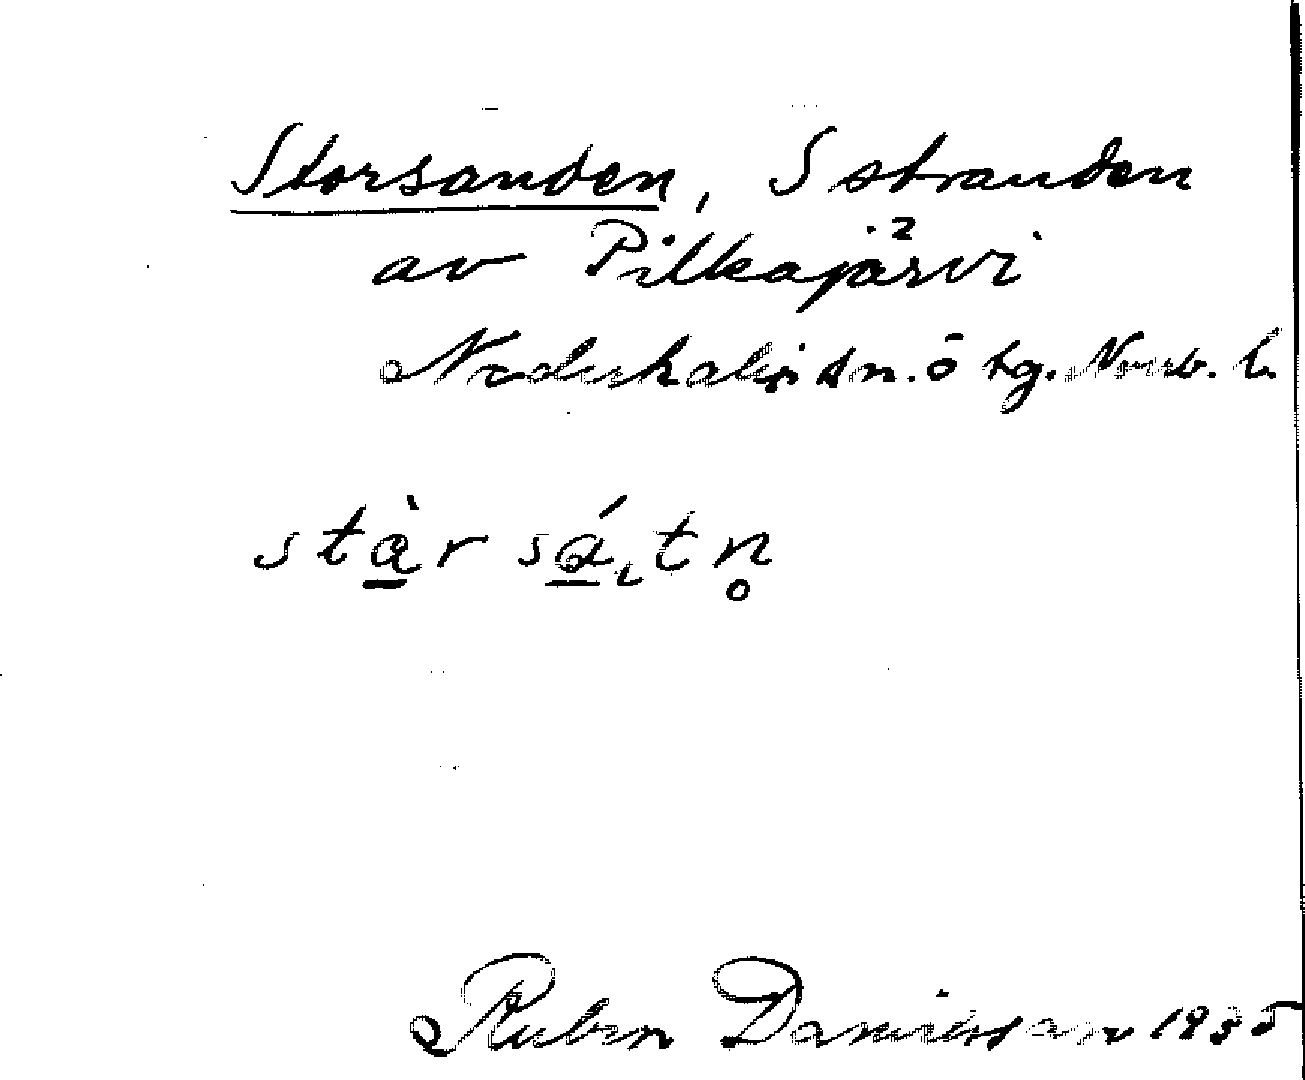 Storsanden, S stranden
av Pilkajärvi
Nederkalix sn. ö tg. Norrb. l.
stàr sá,tn̥
Ruben Danielsson 1935